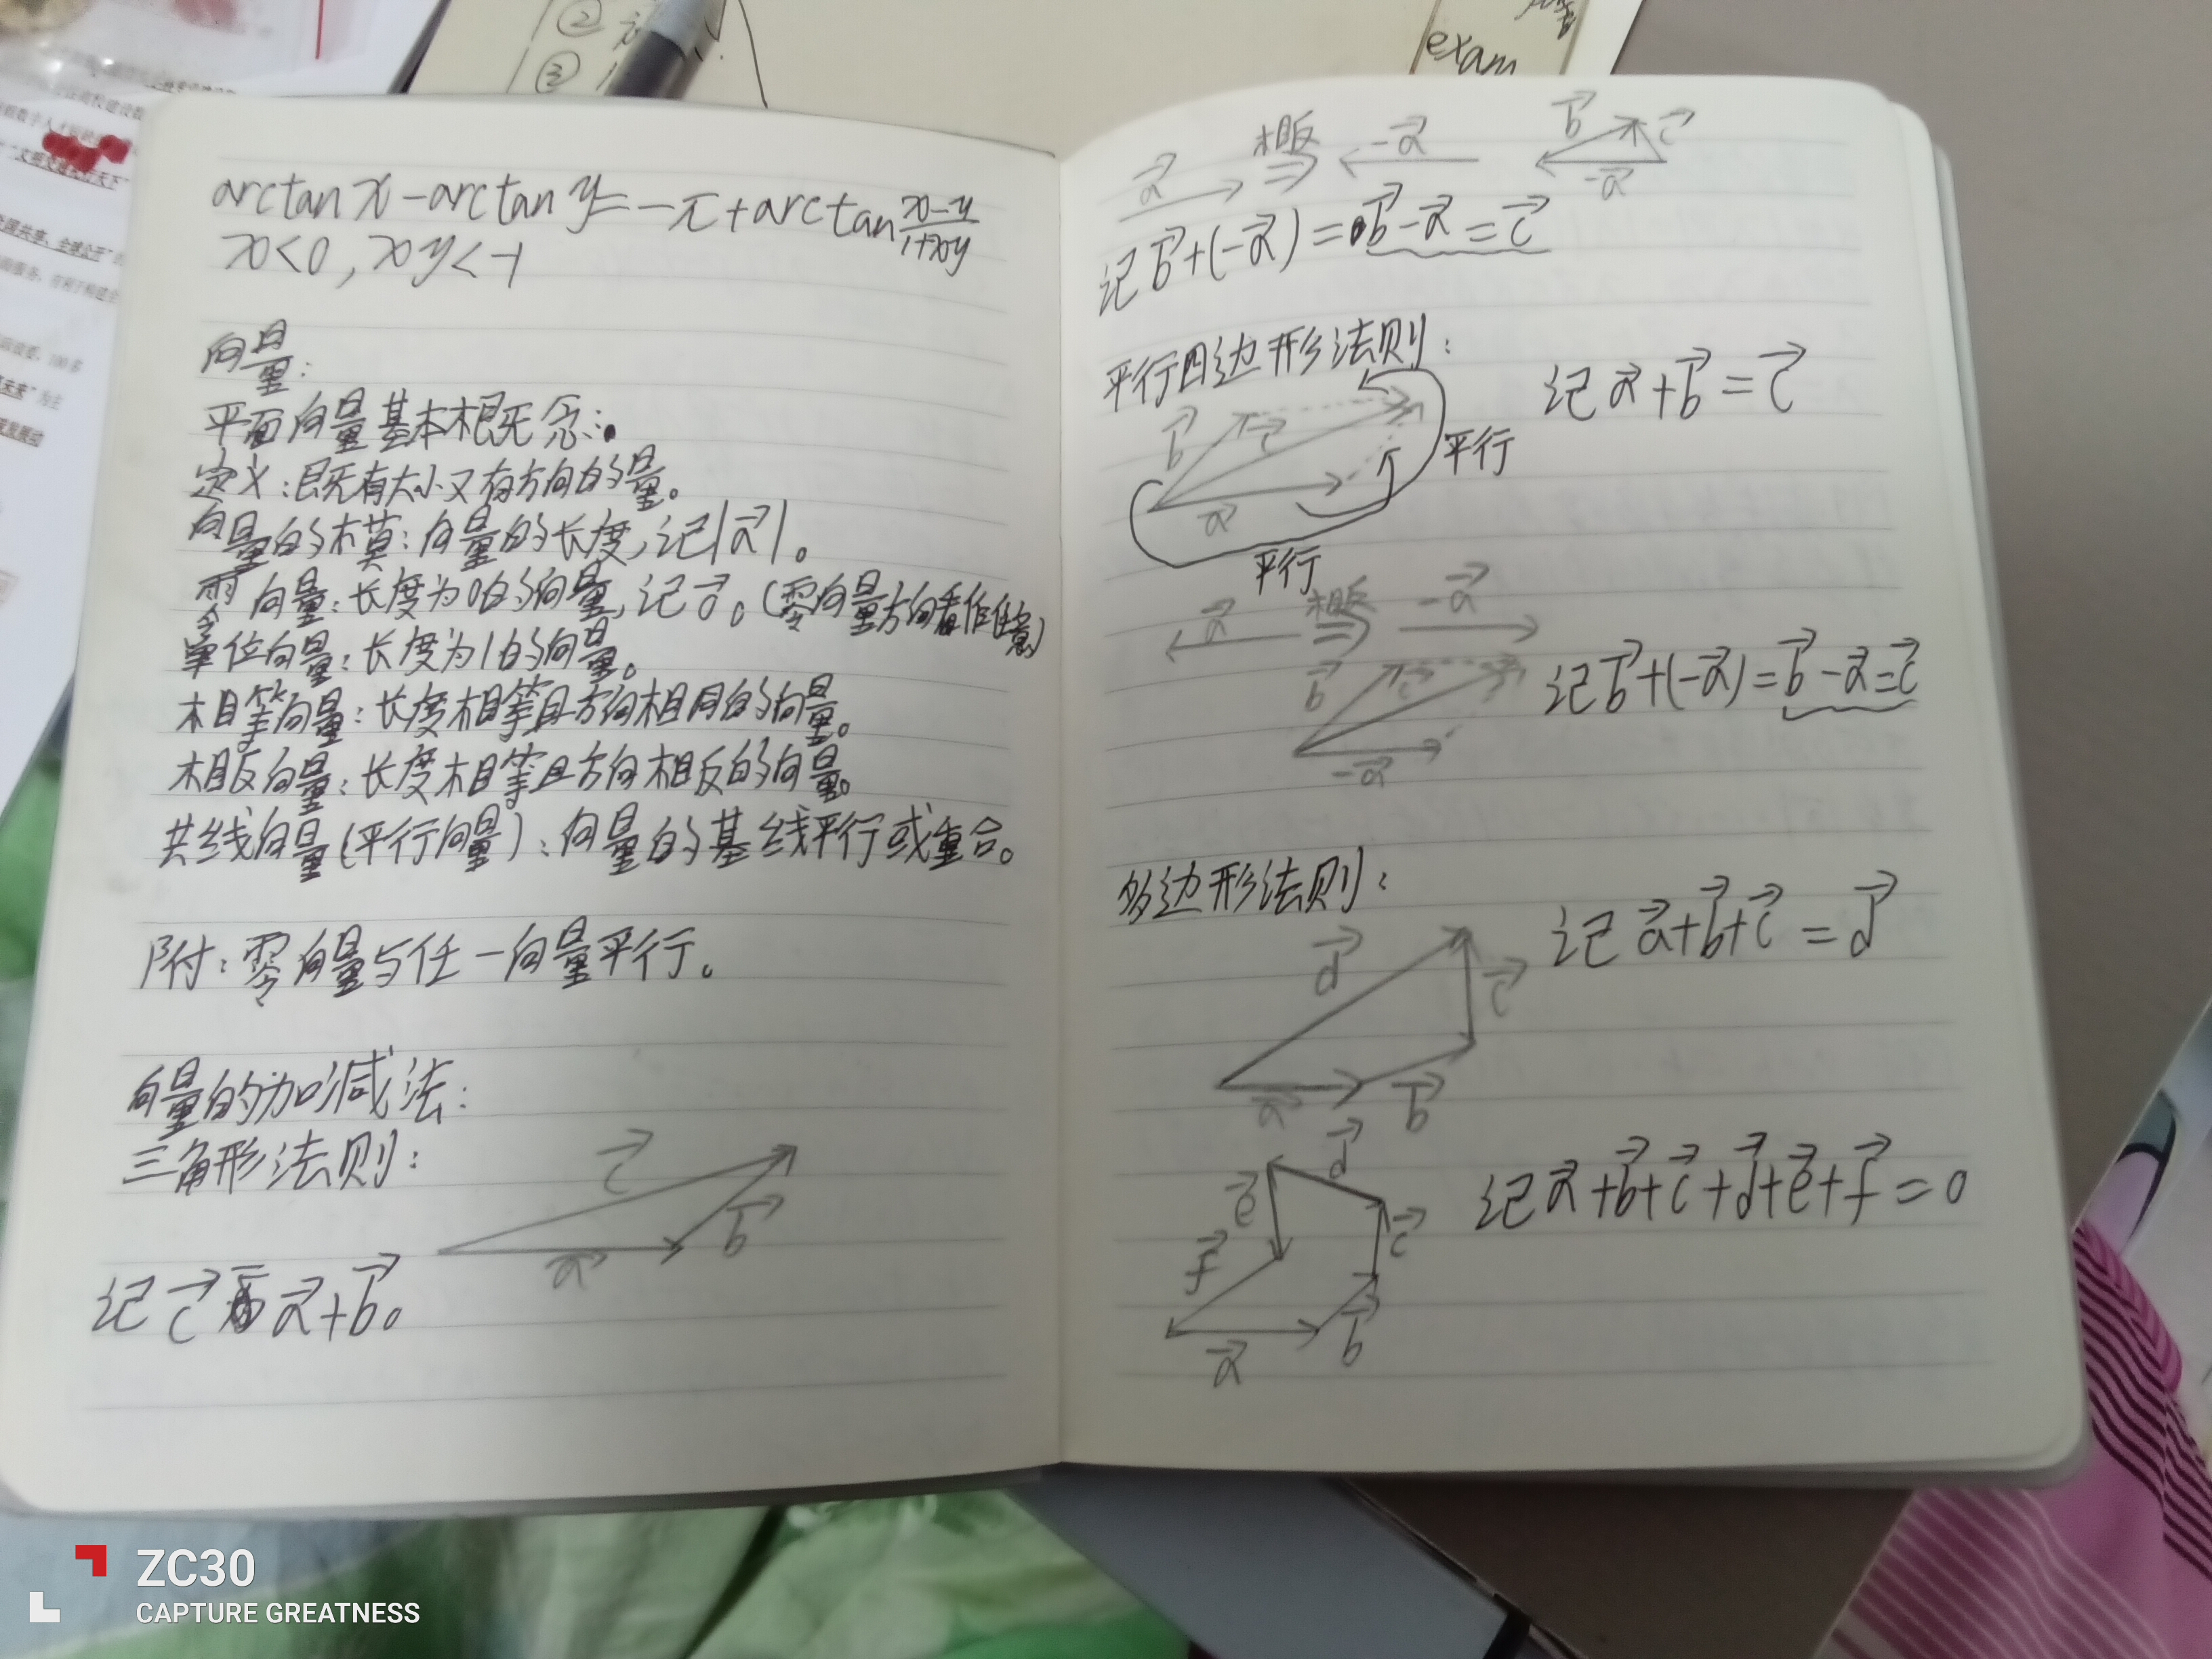 ② 
③
exam
arctan x - arctan y = -π + arctan (x-y)/(1+xy)
x<0, xy<-1
向量:
平面向量基本概念:
定义:既有大小又有方向的量。
向量的模:向量的长度,记|a⃗|。
零向量:长度为0的向量,记0⃗。(零向量方向看作任意)
单位向量:长度为1的向量。
相等向量:长度相等且方向相同的向量。
相反向量:长度相等且方向相反的向量。
共线向量(平行向量):向量的基线平行或重合。
附:零向量与任一向量平行。
向量的加减法:
三角形法则:
c⃗
b⃗
a⃗
记c⃗为a⃗+b⃗。
a⃗ 相反 ⇒ -a⃗
b⃗ c⃗
-a⃗
记b⃗+(-a⃗)=b⃗-a⃗=c⃗
平行四边形法则:
记a⃗+b⃗=c⃗
b⃗ c⃗
平行
a⃗
平行
a⃗ 相反 ⇒ -a⃗
b⃗ c⃗
记b⃗+(-a⃗)=b⃗-a⃗=c⃗
-a⃗
多边形法则:
记a⃗+b⃗+c⃗=d⃗
d⃗
c⃗
a⃗ b⃗
d⃗
e⃗
记a⃗+b⃗+c⃗+d⃗+e⃗+f⃗=0
c⃗
f⃗
b⃗
a⃗
ZC30
CAPTURE GREATNESS